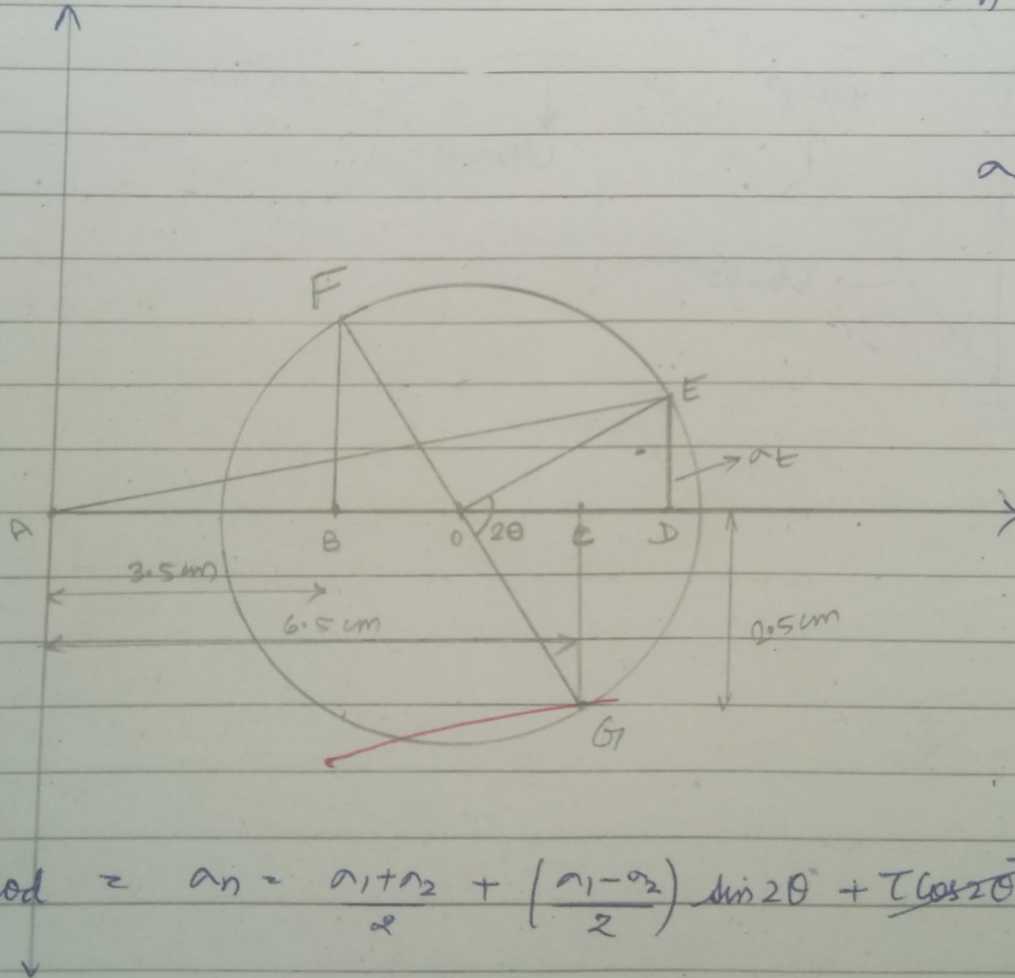 F
E
σt
A
B
O
2θ
C
D
3.5cm
6.5cm
2.5cm
G
od = σn = σ1+σ2/2 + (σ1-σ2/2) sin2θ + τcos2θ